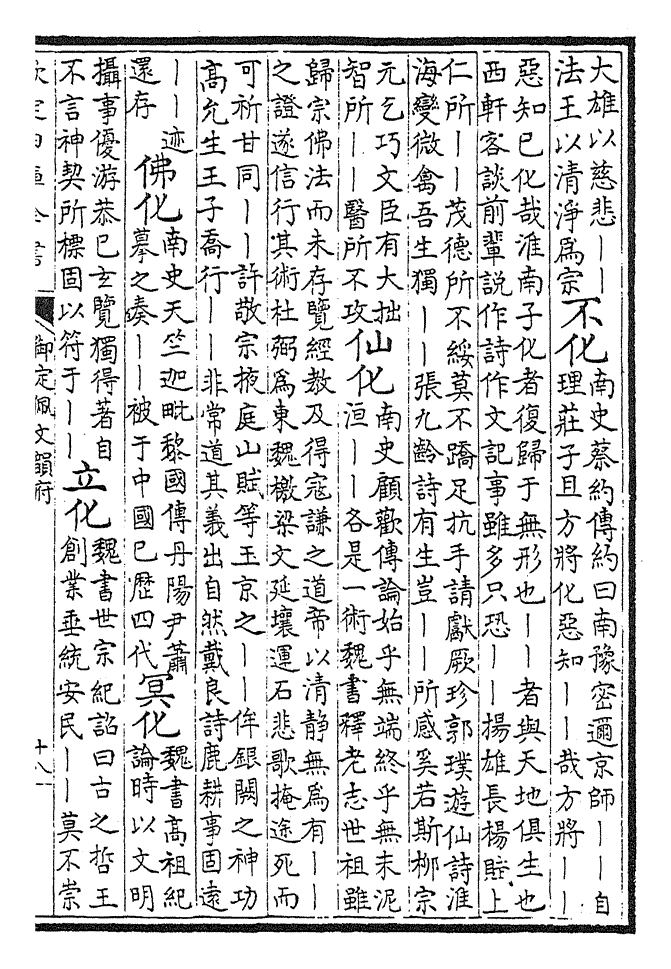 大雄以慈悲——
法王以清淨爲宗
不化
南史蔡約傳約曰南豫密邇京師——自
理莊子且方將化惡知——哉方將——
惡知已化哉淮南子化者復歸于無形也——者與天地俱生也
西軒客談前輩說作詩作文記事雖多只恐——揚雄長楊賦上
仁所——茂德所不綏莫不蹻足抗手請獻厥珍郭璞遊仙詩淮
海變微禽吾生獨——張九齡詩有生豈——所感奚若斯柳宗
元乞巧文臣有大拙
智所——醫所不攻
仙化
南史顧歡傳論始乎無端終乎無末泥
洹——各是一術魏書釋老志世祖雖
歸宗佛法而未存覽經教及得寇謙之道帝以清静無爲有——
之證遂信行其術杜弼爲東魏檄梁文延壤運石悲歌掩途死而
可祈甘同——許敬宗掖庭山賦等玉京之——侔銀闕之神功
高允生王子喬行——非常道其義出自然戴良詩鹿耕事固遠
——迹
還存
佛化
南史天竺迦毗黎國傳丹陽尹蕭
摹之奏——被于中國已歷四代
冥化
魏書高祖紀
論時以文明
攝事優游恭已玄覽獨得著自
不言神契所標固以符于——
立化
魏書世宗紀詔曰古之哲王
創業垂統安民——莫不崇
欽定四庫全書
御定佩文韻府
十八